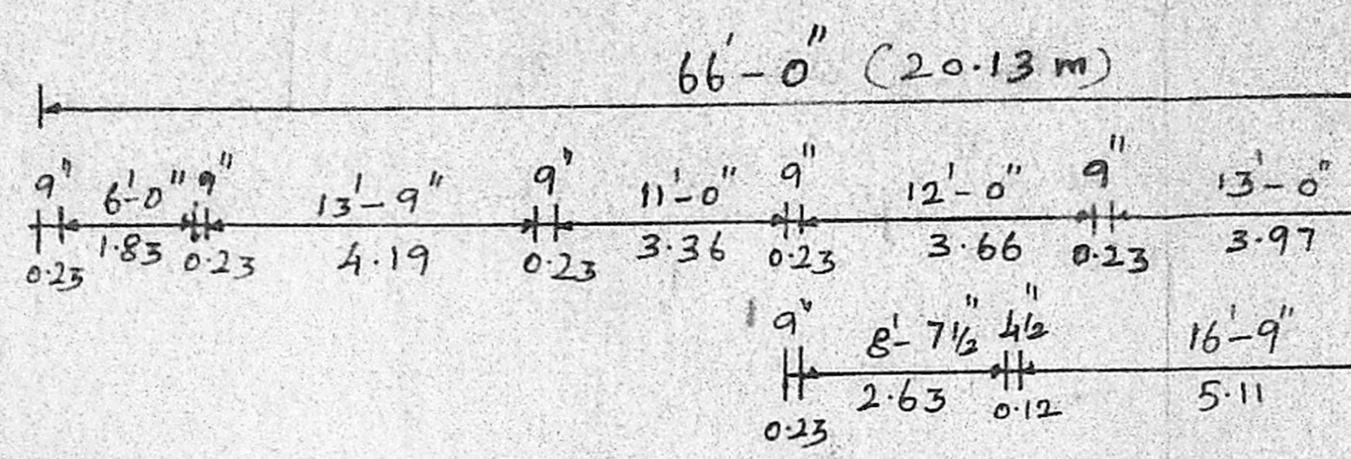 66'-0" (20.13 m)
9" 6'-0" 9" 13'-9" 9" 11'-0" 9" 12'-0" 9" 13'-0"
0.23 1.83 0.23 4.19 0.23 3.36 0.23 3.66 0.23 3.97
9" 8'-7½" 4½" 16'-9"
0.23 2.63 0.12 5.11